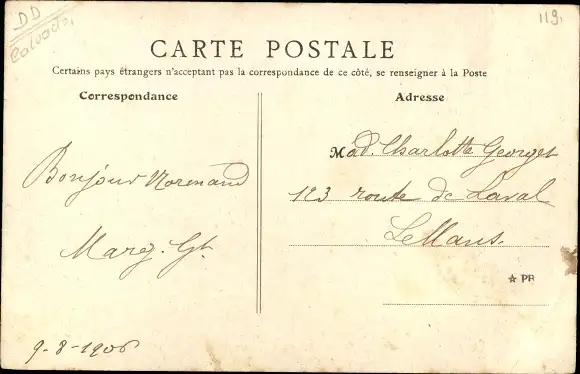 DD
Calvados
119.
CARTE POSTALE
Certains pays étrangers n'acceptant pas la correspondance de ce côté, se renseigner à la Poste
Correspondance
Bonjour Normand
Marg. Gt.
9-8-1906
Adresse
Mad. Charlotte Georget
123 route de Laval
Le Mans.
★ PB